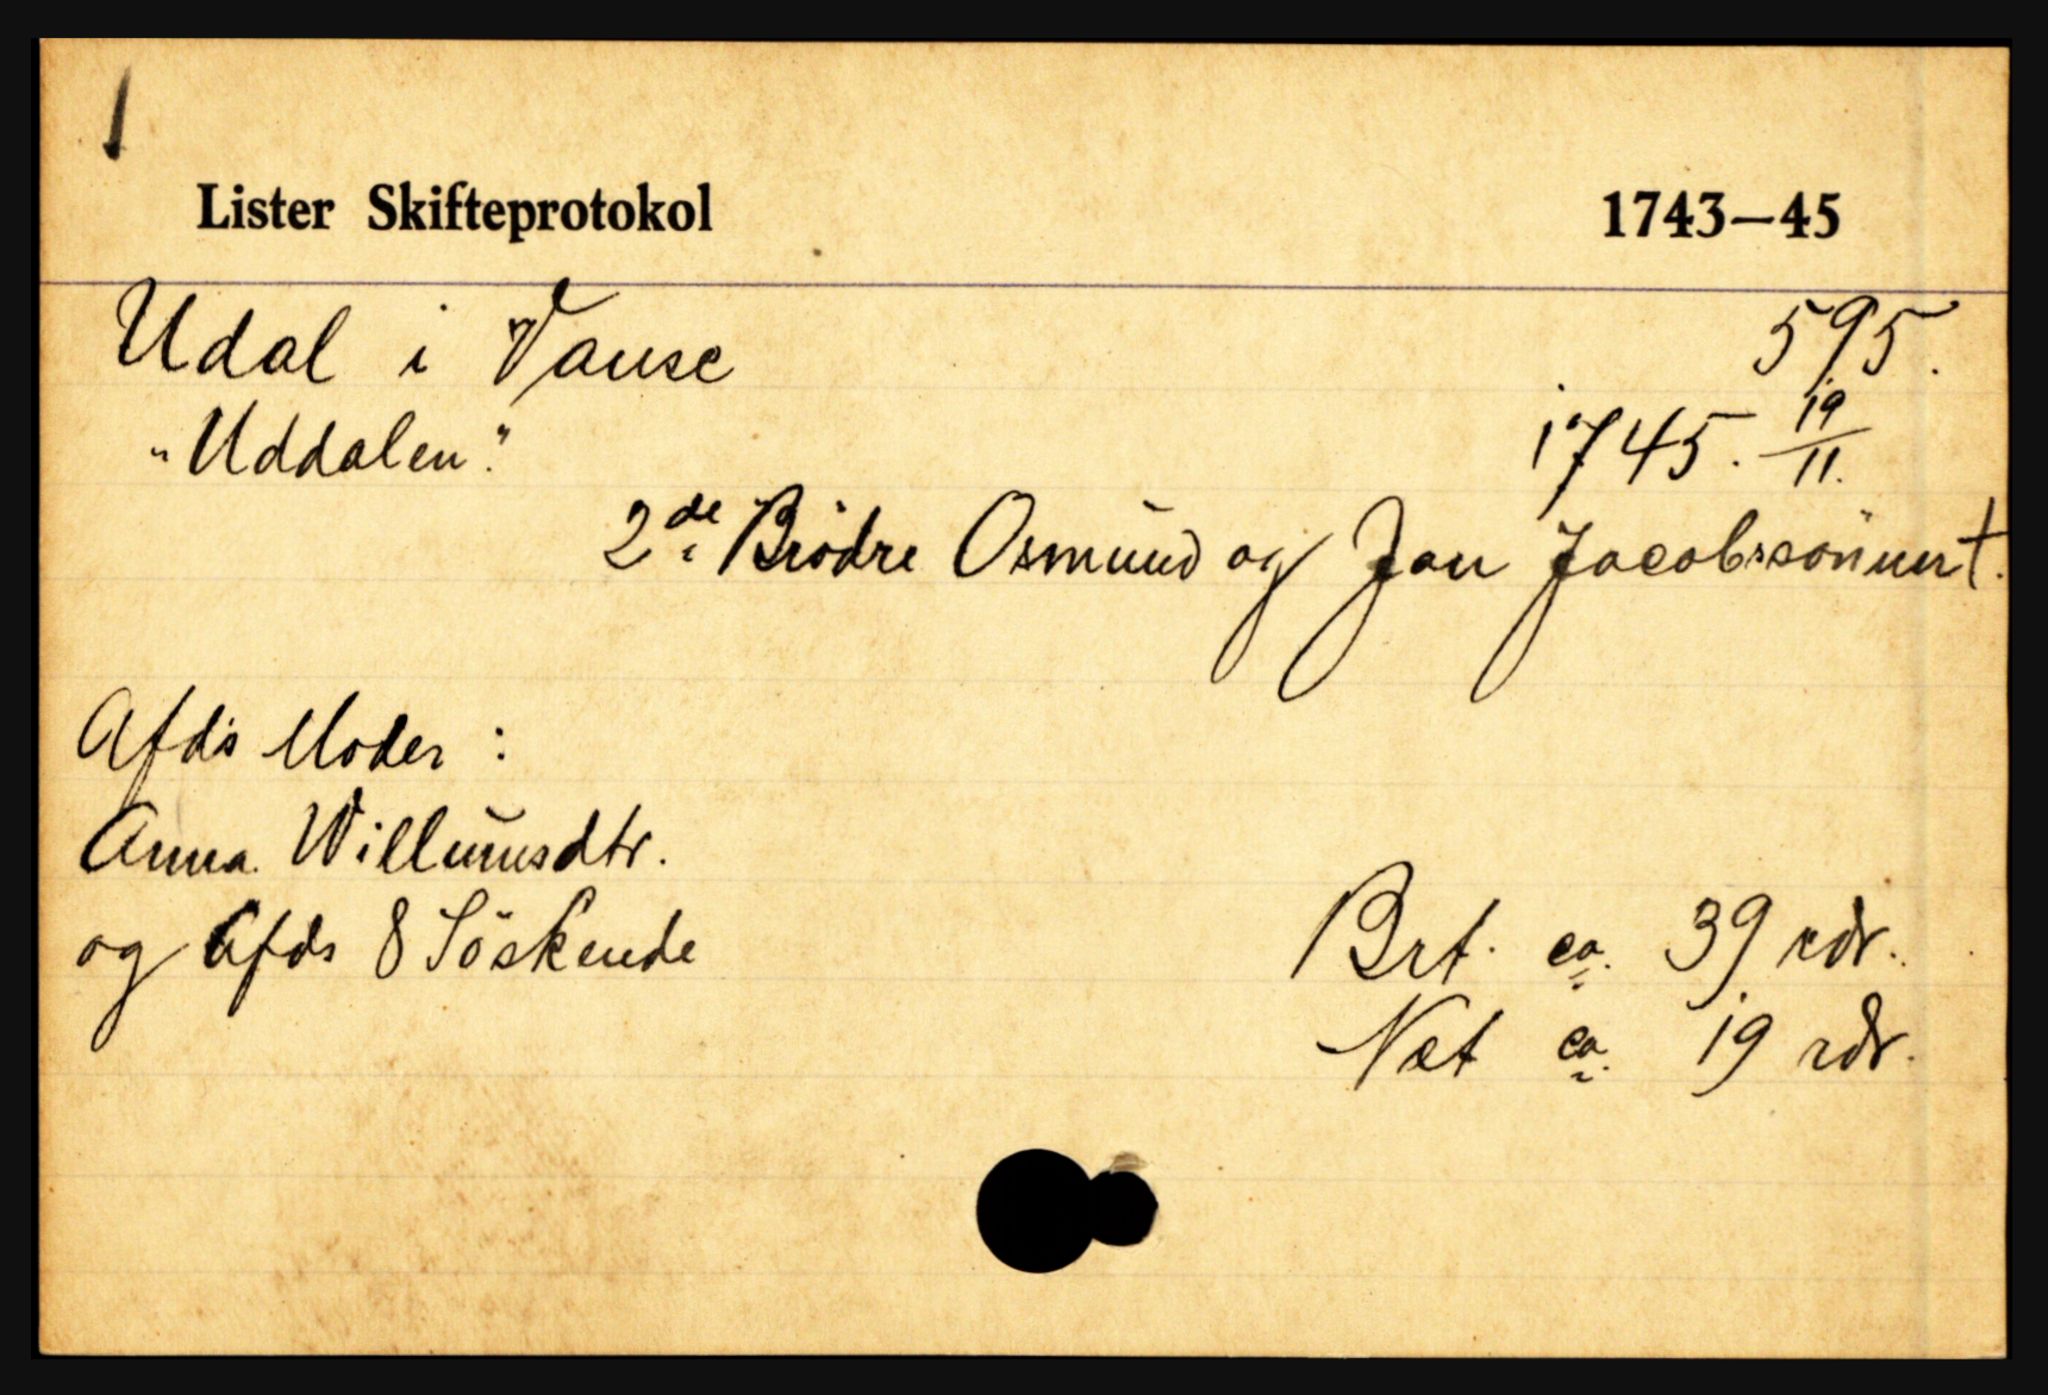 Lister Skifteprotokol 1743—45
Udal i Vanse 595.
"Uddalen." 1745. 19/11.
2de Brödre Osmund og Jan Jacobssönner †.
Afds Moder :
Anna Willumsdtr.
og Afds 8 Söskende Brt. ca. 39 rdr.
Net ca. 19 rdr.